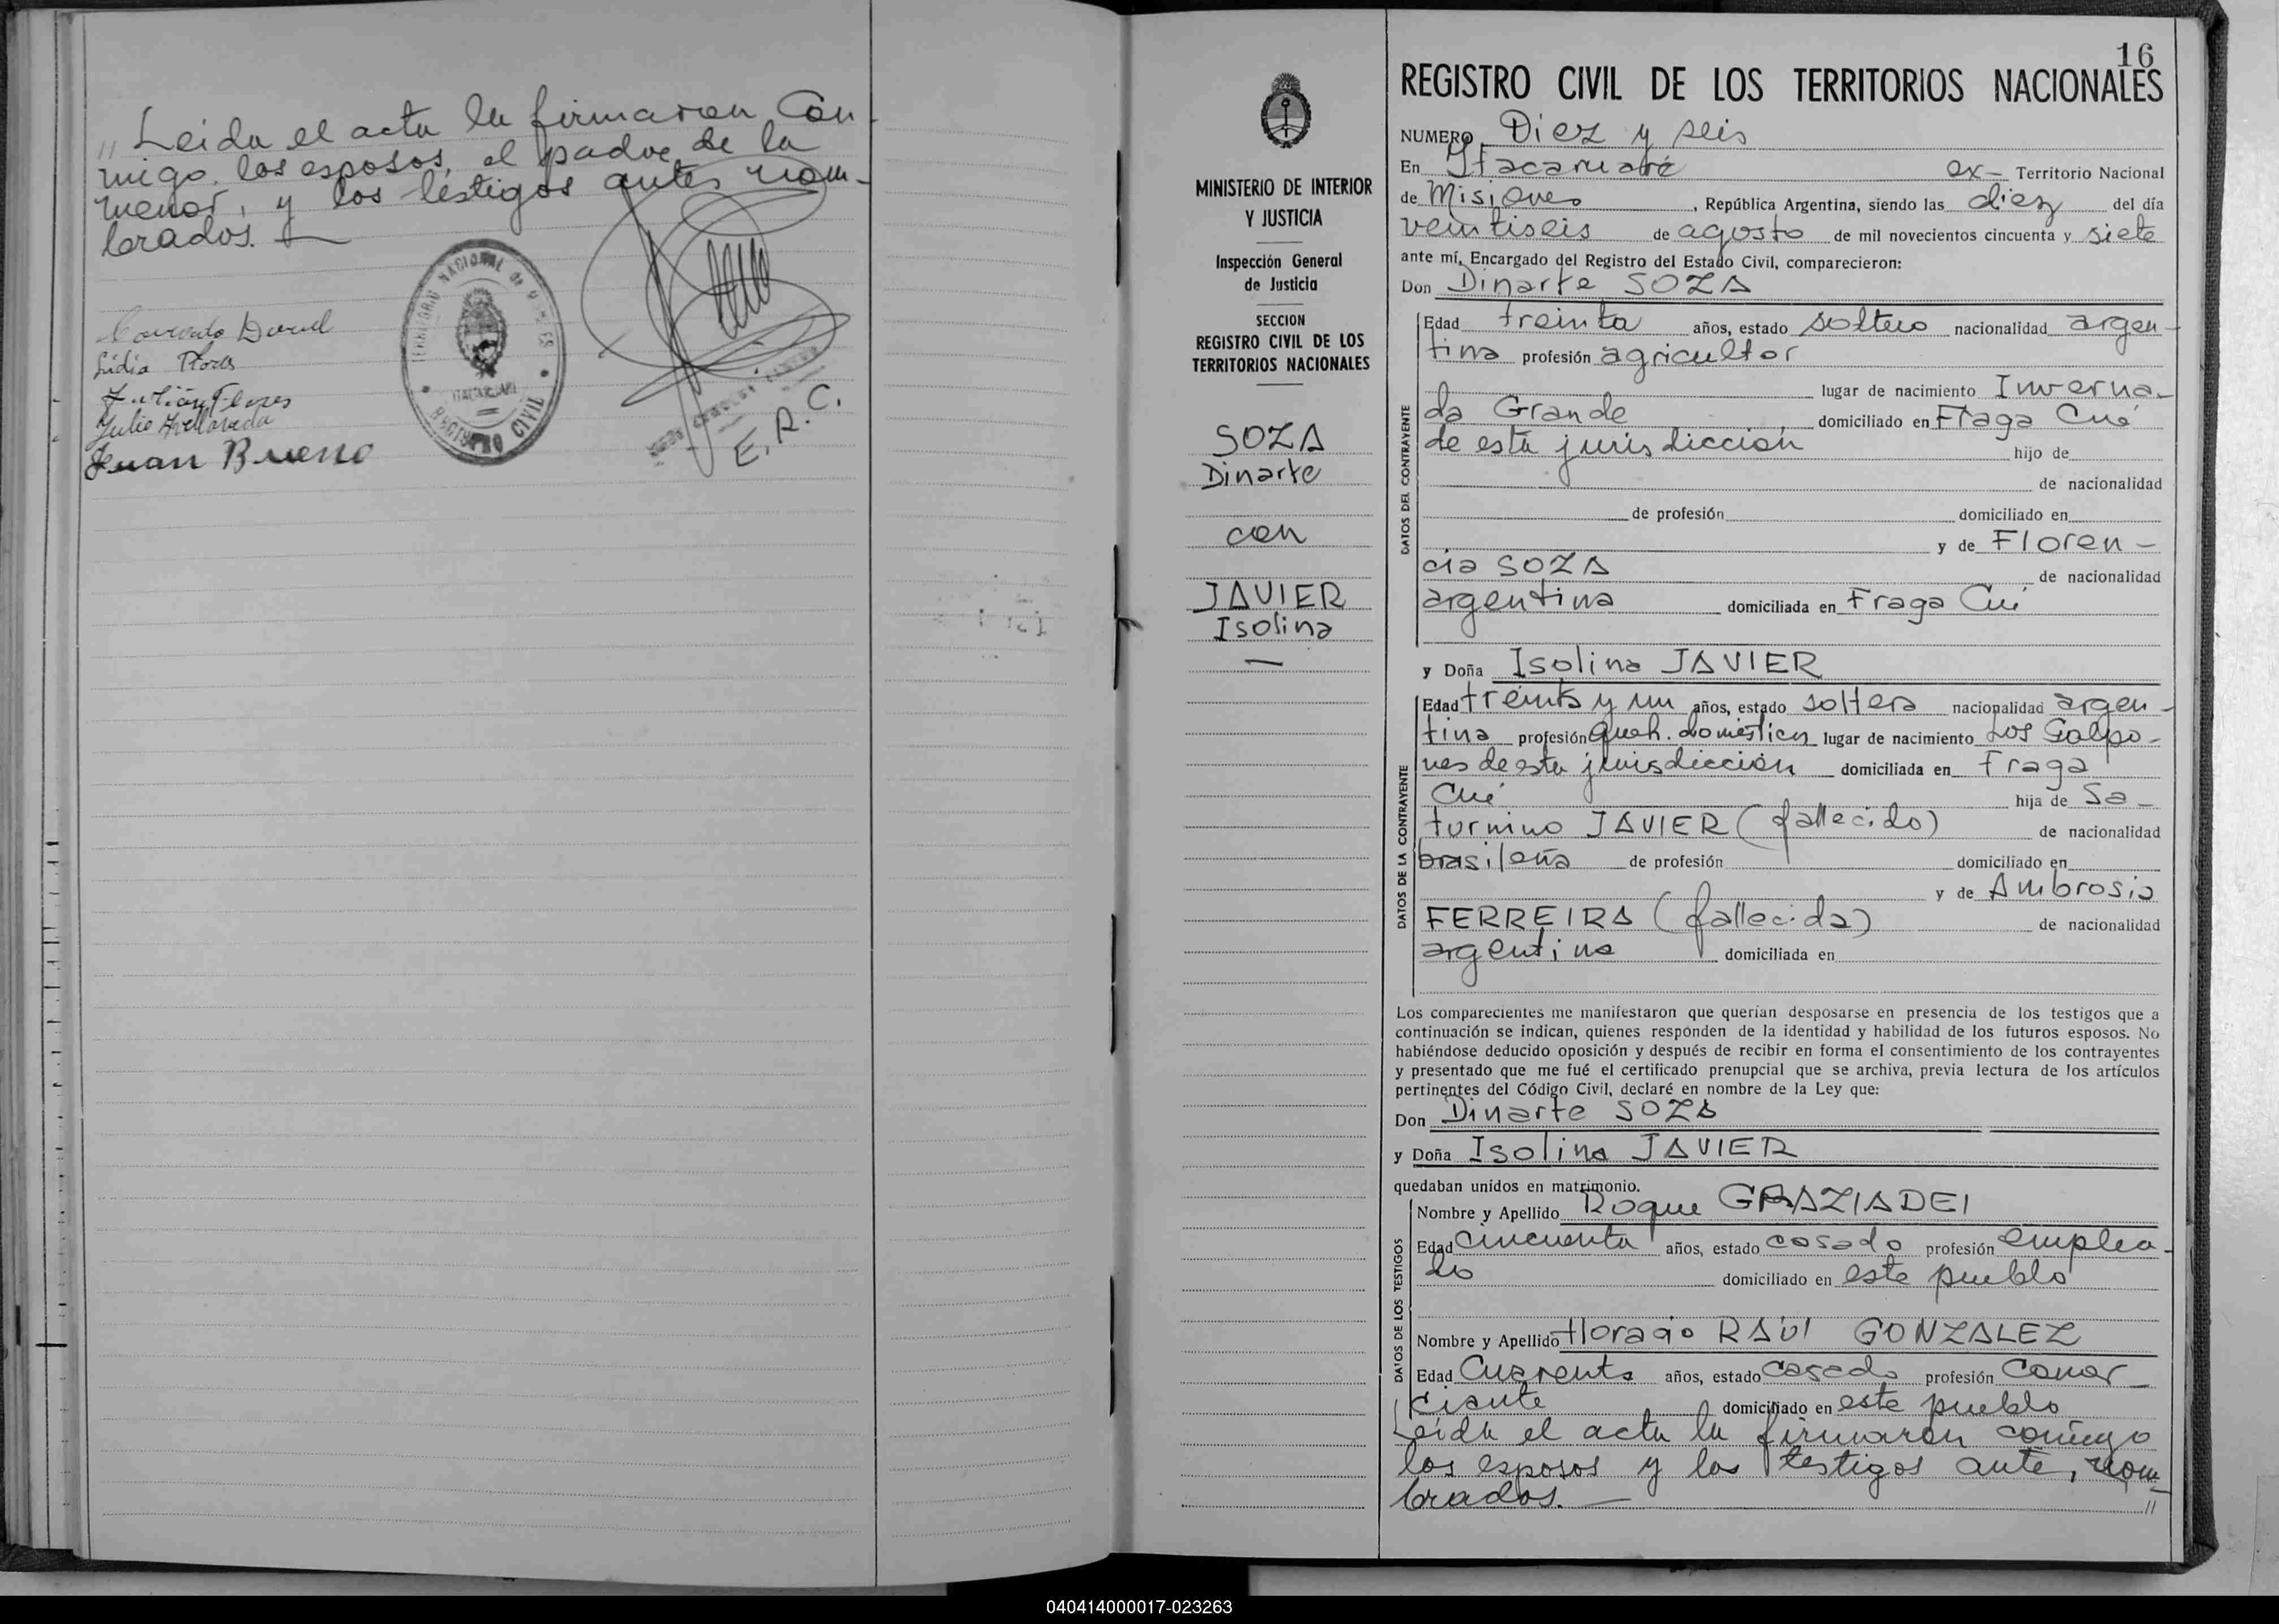 " Leida el acta la firmaron Con-
migo, los esposos, el padre de la
menor, y los testigos antes nom-
brados.
Lidia Flores
Julián Flores
Julio Avellaneda
Juan Bueno
REGISTRO CIVIL
E. R. C.
MINISTERIO DE INTERIOR
Y JUSTICIA
Inspección General
de Justicia
SECCION
REGISTRO CIVIL DE LOS
TERRITORIOS NACIONALES
SOZA
Dinarte
con
JAVIER
Isolina
16
REGISTRO CIVIL DE LOS TERRITORIOS NACIONALES
NUMERO Diez y seis
En Itacaruaré ex- Territorio Nacional
de Misiones, República Argentina, siendo las diez del día
veintiseis de agosto de mil novecientos cincuenta y siete
ante mí, Encargado del Registro del Estado Civil, comparecieron:
Don Dinarte SOZA
DATOS DEL CONTRAYENTE
Edad treinta años, estado soltero nacionalidad argen-
tina profesión agricultor
lugar de nacimiento Inverna-
da Grande domiciliado en Fraga Cué
de esta jurisdicción hijo de
de nacionalidad
de profesión domiciliado en
y de Floren-
cia SOZA de nacionalidad
argentina domiciliada en Fraga Cué
y Doña Isolina JAVIER
DATOS DE LA CONTRAYENTE
Edad treinta y un años, estado soltera nacionalidad argen-
tina profesión queh. domésticos lugar de nacimiento Los Galpo-
nes de esta jurisdicción domiciliada en Fraga
Cué hija de Sa-
turnino JAVIER (fallecido) de nacionalidad
brasileña de profesión domiciliado en
y de Ambrosia
FERREIRA (fallecida) de nacionalidad
argentina domiciliada en
Los comparecientes me manifestaron que querían desposarse en presencia de los testigos que a
continuación se indican, quienes responden de la identidad y habilidad de los futuros esposos. No
habiéndose deducido oposición y después de recibir en forma el consentimiento de los contrayentes
y presentado que me fué el certificado prenupcial que se archiva, previa lectura de los artículos
pertinentes del Código Civil, declaré en nombre de la Ley que:
Don Dinarte SOZA
y Doña Isolina JAVIER
quedaban unidos en matrimonio.
DATOS DE LOS TESTIGOS
Nombre y Apellido Roque GRAZIADEI
Edad cincuenta años, estado casado profesión emplea-
do domiciliado en este pueblo
Nombre y Apellido Horacio RAÚl GONZALEZ
Edad Cuarenta años, estado casado profesión Comer-
ciante domiciliado en este pueblo
Leida el acta la firmaron conmigo
los esposos y los testigos antes nom-
brados. "
040414000017-023263